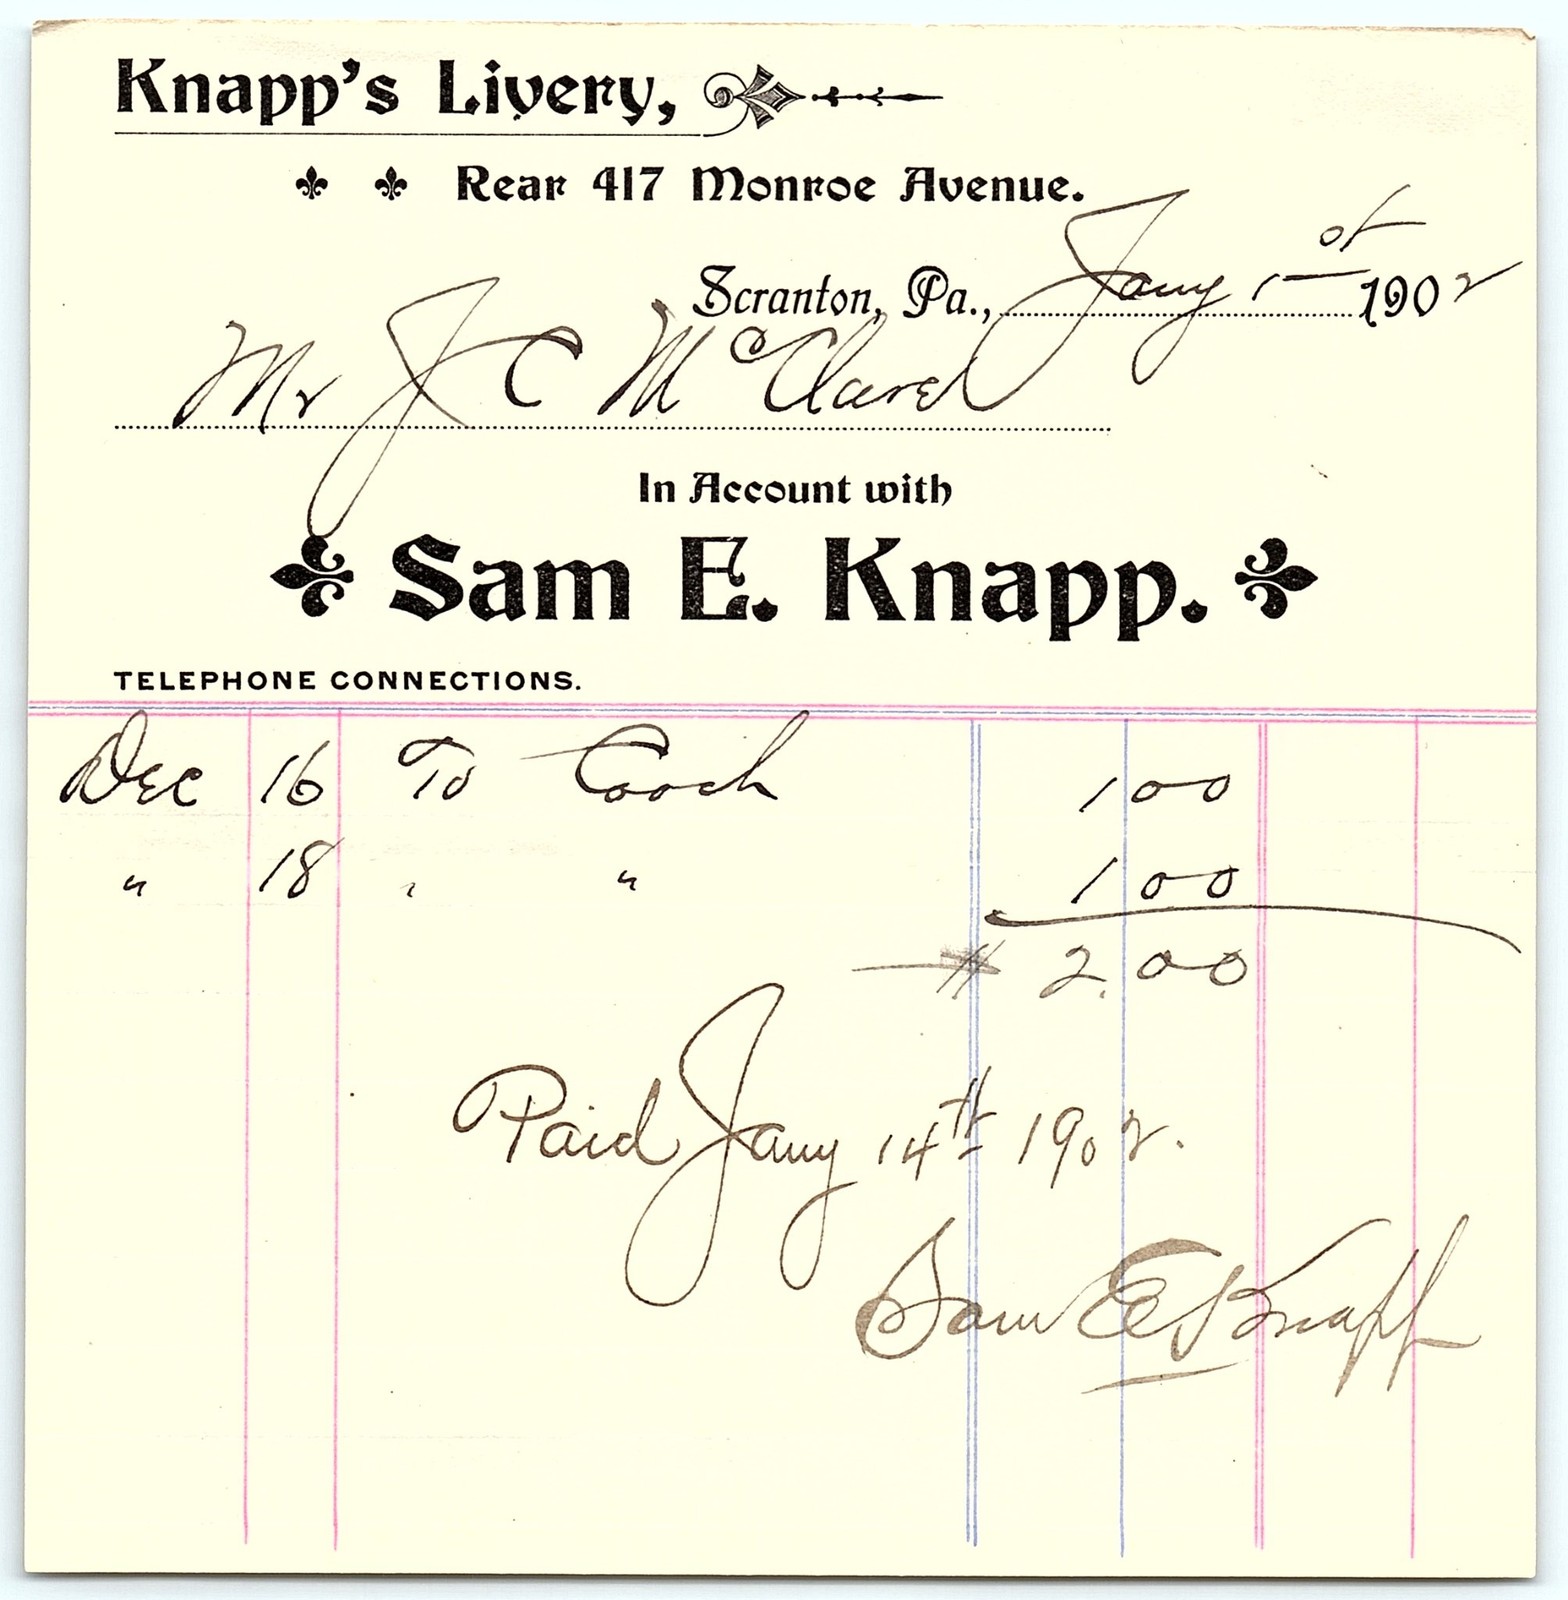 Knapp's Livery,
Rear 417 Monroe Avenue.
Scranton, Pa., Jany 1st 1902
Mr J C McClure
In Account with
Sam E. Knapp.
TELEPHONE CONNECTIONS.
Dec 16 To Coach 1 00
" 18 " " 1 00
$ 2.00
Paid Jany 14th 1902.
Sam E Knapp